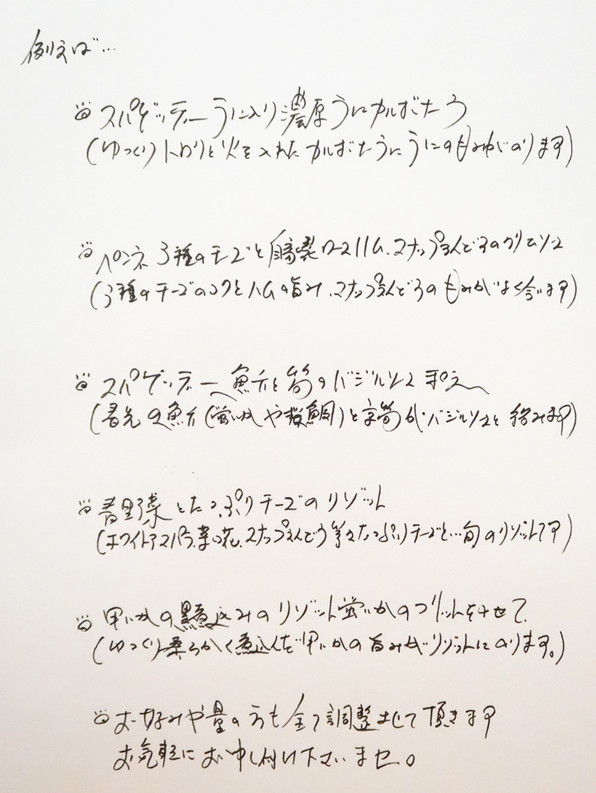 例えば…
スパゲッティー うに入り濃厚うにカルボナーラ
(ゆっくりトロリと火を入れたカルボナーラにうにの甘みがのります)
ペンネ 3種のチーズと自家製ロースハム、スナップえんどうのクリームソース
(3種のチーズのコクとハムの旨み、スナップえんどうの甘みがよく合います)
スパゲッティー 魚介と筍のバジルソース和え
(春先の魚介(蛍いかや桜鯛)と筍がバジルソースと絡みます)
春野菜とたっぷりチーズのリゾット
(ホワイトアスパラ、菜の花、スナップえんどう等々たっぷりチーズと…旬のリゾットです)
甲いかの墨煮込みのリゾット 蛍いかのフリットをのせて
(ゆっくり柔らかく煮込んだ甲いかの旨みがリゾットにのります。)
お好みや量の方も全て調整させて頂きます
お気軽にお申し付け下さいませ。